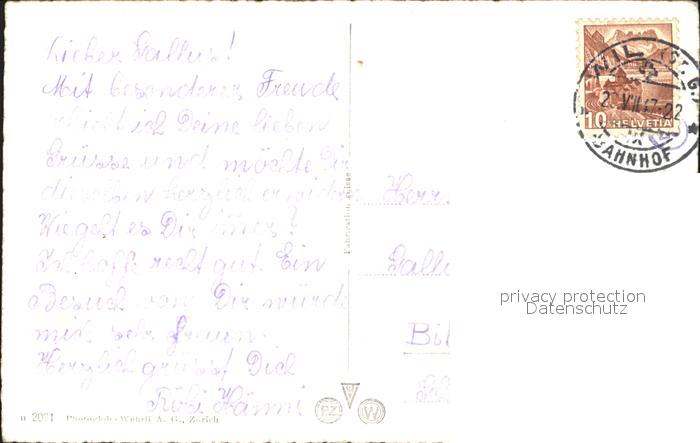 Lieber Gallus!
Mit besonderer Freude
erhielt ich Deine lieben
Grüsse und möchte Dir
dieselben herzlich erwidern
Wie geht es Dir immer?
Ich hoffe recht gut. Ein
Besuch von Dir würde
mich sehr freuen.
Herzlich grüsst Dich
Röbi Hänni
Fabrication suisse
Herr
Gallu
Bil
WIL (ST. G.)
VII 47-22
BAHNHOF
10 HELVETIA
privacy protection
Datenschutz
Photoglob-Wehrli A. G., Zürich
PZ
W